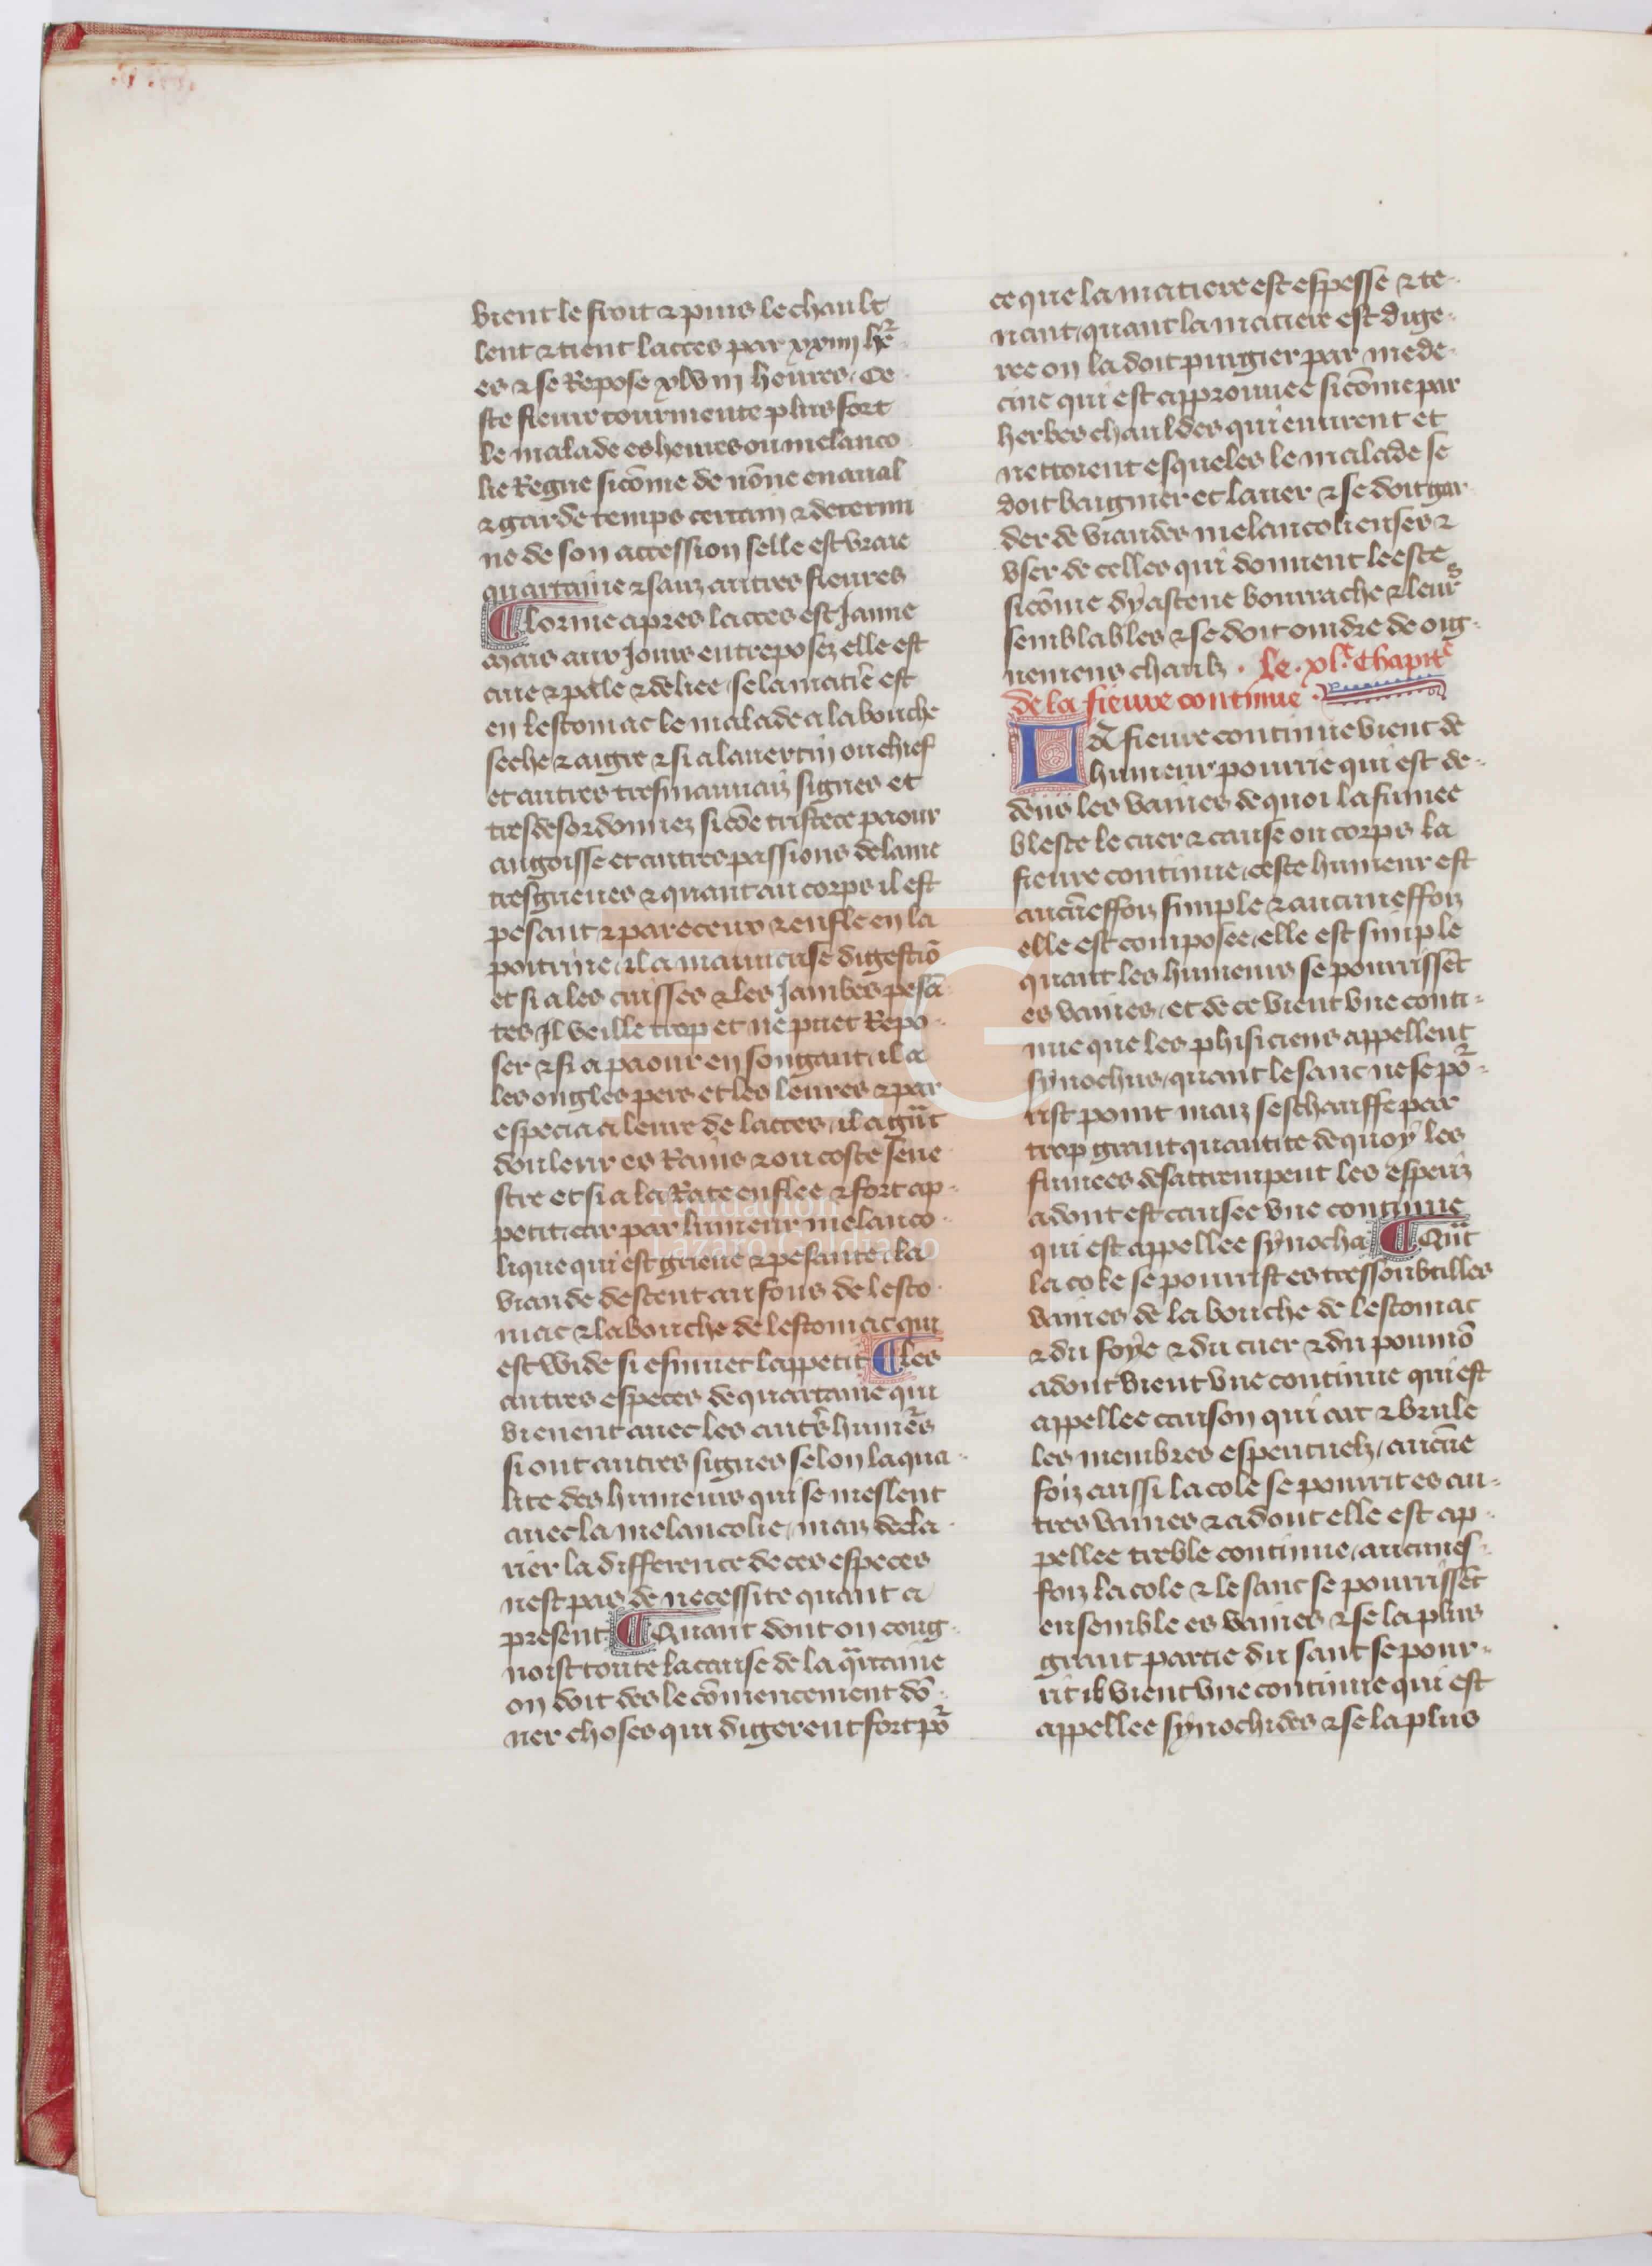 vient le froit ⁊ puis le chault
lent ⁊ tient lacces par xxiiij heˀ
es ⁊ se Repose xlviij heures. Ce
ste fieure tourmente plus fort
le malade es heures ou melanco
lie Regne sicōme de nōne en aual
⁊ garde temps certain ⁊ determi
ne de son accession selle est vraie
quartaine ⁊ sanz autres fieures
¶ lorine apres lacces est Jaune
mais aux Jours entreposez elle est
cure ⁊ pale ⁊ deliee / se la matie͛ est
en lestomac le malade a la bouche
seche ⁊ aigre ⁊ si a lauertin ou chief
et autres tresmauuaiz signes et
tresdesordonnez sicōe tristece paour
angoisse et autres passions de lame
tresgrieues ⁊ quant au corps il est
pesant ⁊ pareceux ⁊ enfle en la
poitrine / ⁊ la mauuaise digestiō
et si a les cuisses ⁊ les Jambes pesā
tes Il veille trop et ne puet Repo-
ser ⁊ si a paour en songant / il a
les ongles pers et les leures ⁊ par
especial a leure de lacces / il a gn̄t
douleur es Rains ⁊ ou coste sene
stre et si a la Rate enflee ⁊ fort ap-
petit / car par lumeur melanco-
lique qui est grieue ⁊ pesante / la
viande descent au fons de lesto-
mac ⁊ la bouche de lestomac qui
est wide si esmuet lappetit ¶ les
autres especes de quartaine qui
vienent auec les aut͛s humēs
si ont autres signes selon la qua-
lite des humeurs qui se meslent
auec la melancolie / maiz decla-
rier la difference de ces especes
nest pas de necessite quant a
present ¶ Quant dont on cong-
noist toute la cause de la qͣrtaine
on doit des le cōmencement dō-
ner choses qui digerent fort poˀ
ce que la matiere est espesse ⁊ te-
nant / quant la matiere est dige-
ree on la doit purgier par mede-
cine qui est approuuee sicōme par
herbes chauldes qui eurent et
nettoient esqueles le malade se
doit baignier et lauer ⁊ se doit gar-
der de viandes melancolieuses ⁊
vser de celles qui donnent leesce
sicōme dyascene bourrache ⁊ leurs
semblables ⁊ se doit oindre de oig-
nemens chaulz. Le .xl.ͤ Chapitͤ
de la fieure continue.
La fieure continue vient de
humeur pourrie qui est de-
dēns les vaines de quoi la fumee
blesce le cuer ⁊ cause ou corps la
fieure continue / ceste humeur est
aucūeffoiz simple ⁊ aucuneffoiz
elle est composee / elle est simple
quant les humeurs se pourrissēt
es vaines / et de ce vient vne conti-
nue que les phisiciens appellent
synochus / quant le sanc ne se poˀ-
rist point maiz seschauffe par
trop grant quantite de quoy les
fumees desattrempent les esperiz
adont est causee vne continue
qui est appellee synocha ¶ Qn̄t
la cole se pourrist es tressoubtilles
vaines de la bouche de lestomac
⁊ du foye ⁊ du cuer ⁊ du poumō
adont vient vne continue qui est
appellee causon qui art ⁊ brule
les membres esperituelz / aucūe
foiz aussi la cole se pourrit es au-
tres vaines ⁊ adont elle est ap-
pellee treble continue / aucunes-
foiz la cole ⁊ le sanc se pourrissēt
ensemble es vaines ⁊ se la plus
grant partie du sanc se pour-
rit ib vient vne continue qui est
appellee synochides ⁊ se la plus
Fundación
Lázaro Galdiano